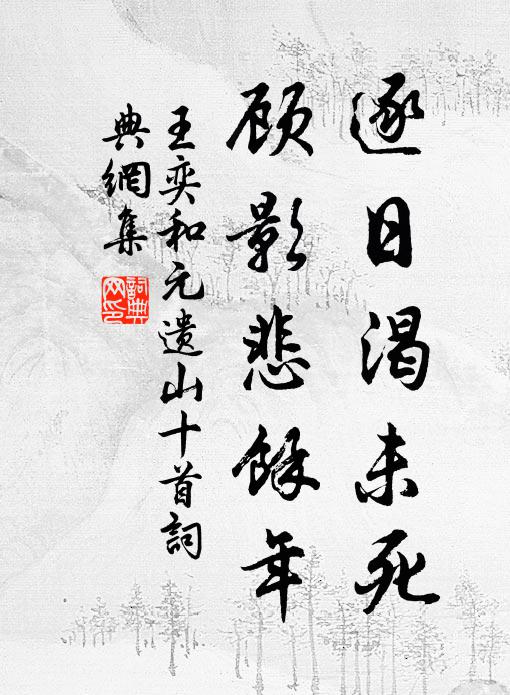 逐日渴未死
顾影悲餘年
王奕和元遗山十首詞
典網集
詞典网印